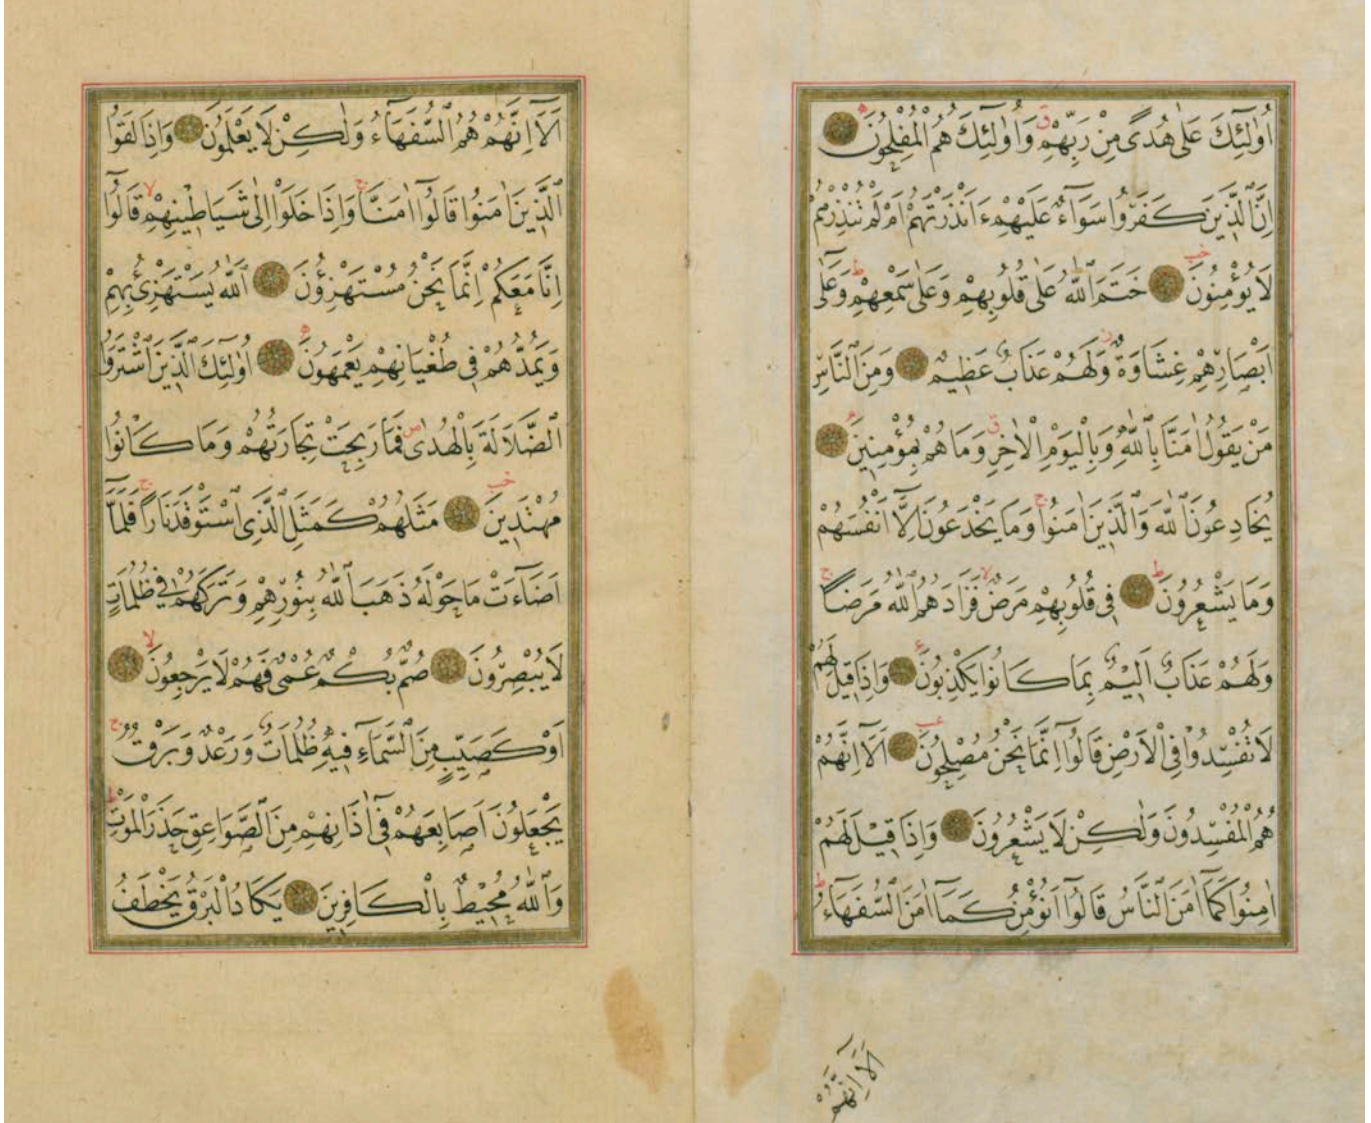 اُولٰٓئِكَ عَلٰى هُدًى مِنْ رَبِّهِمْ ق وَاُولٰٓئِكَ هُمُ الْمُفْلِحُونَ
اِنَّ الَّذِينَ كَفَرُوا سَوَٓاءٌ عَلَيْهِمْ ءَاَنْذَرْتَهُمْ اَمْ لَمْ تُنْذِرْهُمْ
لَا يُؤْمِنُونَ خَتَمَ اللّٰهُ عَلٰى قُلُوبِهِمْ وَعَلٰى سَمْعِهِمْ ط وَعَلٰٓى
اَبْصَارِهِمْ غِشَاوَةٌ وَلَهُمْ عَذَابٌ عَظِيمٌ وَمِنَ النَّاسِ
مَنْ يَقُولُ اٰمَنَّا بِاللّٰهِ وَبِالْيَوْمِ الْاٰخِرِ ق وَمَا هُمْ بِمُؤْمِنِينَ
يُخَادِعُونَ اللّٰهَ وَالَّذِينَ اٰمَنُوا ج وَمَا يَخْدَعُونَ اِلَّٓا اَنْفُسَهُمْ
وَمَا يَشْعُرُونَ ط فِي قُلُوبِهِمْ مَرَضٌ لا فَزَادَهُمُ اللّٰهُ مَرَضًا ج
وَلَهُمْ عَذَابٌ اَلِيمٌ بِمَا كَانُوا يَكْذِبُونَ وَاِذَا قِيلَ لَهُمْ
لَا تُفْسِدُوا فِي الْاَرْضِ قَالُٓوا اِنَّمَا نَحْنُ مُصْلِحُونَ اَلَٓا اِنَّهُمْ
هُمُ الْمُفْسِدُونَ وَلٰكِنْ لَا يَشْعُرُونَ وَاِذَا قِيلَ لَهُمْ
اٰمِنُوا كَمَٓا اٰمَنَ النَّاسُ قَالُٓوا اَنُؤْمِنُ كَمَٓا اٰمَنَ السُّفَهَٓاءُ ط
اَلَٓا اِنَّهُمْ
اَلَٓا اِنَّهُمْ هُمُ السُّفَهَٓاءُ وَلٰكِنْ لَا يَعْلَمُونَ وَاِذَا لَقُوا
الَّذِينَ اٰمَنُوا قَالُٓوا اٰمَنَّا ج وَاِذَا خَلَوْا اِلٰى شَيَاطِينِهِمْ لا قَالُٓوا
اِنَّا مَعَكُمْ اِنَّمَا نَحْنُ مُسْتَهْزِؤُنَ اَللّٰهُ يَسْتَهْزِئُ بِهِمْ
وَيَمُدُّهُمْ فِي طُغْيَانِهِمْ يَعْمَهُونَ اُولٰٓئِكَ الَّذِينَ اشْتَرَوُا
الضَّلَالَةَ بِالْهُدٰى ص فَمَا رَبِحَتْ تِجَارَتُهُمْ وَمَا كَانُوا
مُهْتَدِينَ مَثَلُهُمْ كَمَثَلِ الَّذِي اسْتَوْقَدَ نَارًا ج فَلَمَّٓا
اَضَٓاءَتْ مَا حَوْلَهُ ذَهَبَ اللّٰهُ بِنُورِهِمْ وَتَرَكَهُمْ فِي ظُلُمَاتٍ
لَا يُبْصِرُونَ صُمٌّ بُكْمٌ عُمْيٌ فَهُمْ لَا يَرْجِعُونَ لا
اَوْ كَصَيِّبٍ مِنَ السَّمَٓاءِ فِيهِ ظُلُمَاتٌ وَرَعْدٌ وَبَرْقٌ ج
يَجْعَلُونَ اَصَابِعَهُمْ فِٓي اٰذَانِهِمْ مِنَ الصَّوَاعِقِ حَذَرَ الْمَوْتِ ط
وَاللّٰهُ مُحِيطٌ بِالْكَافِرِينَ يَكَادُ الْبَرْقُ يَخْطَفُ